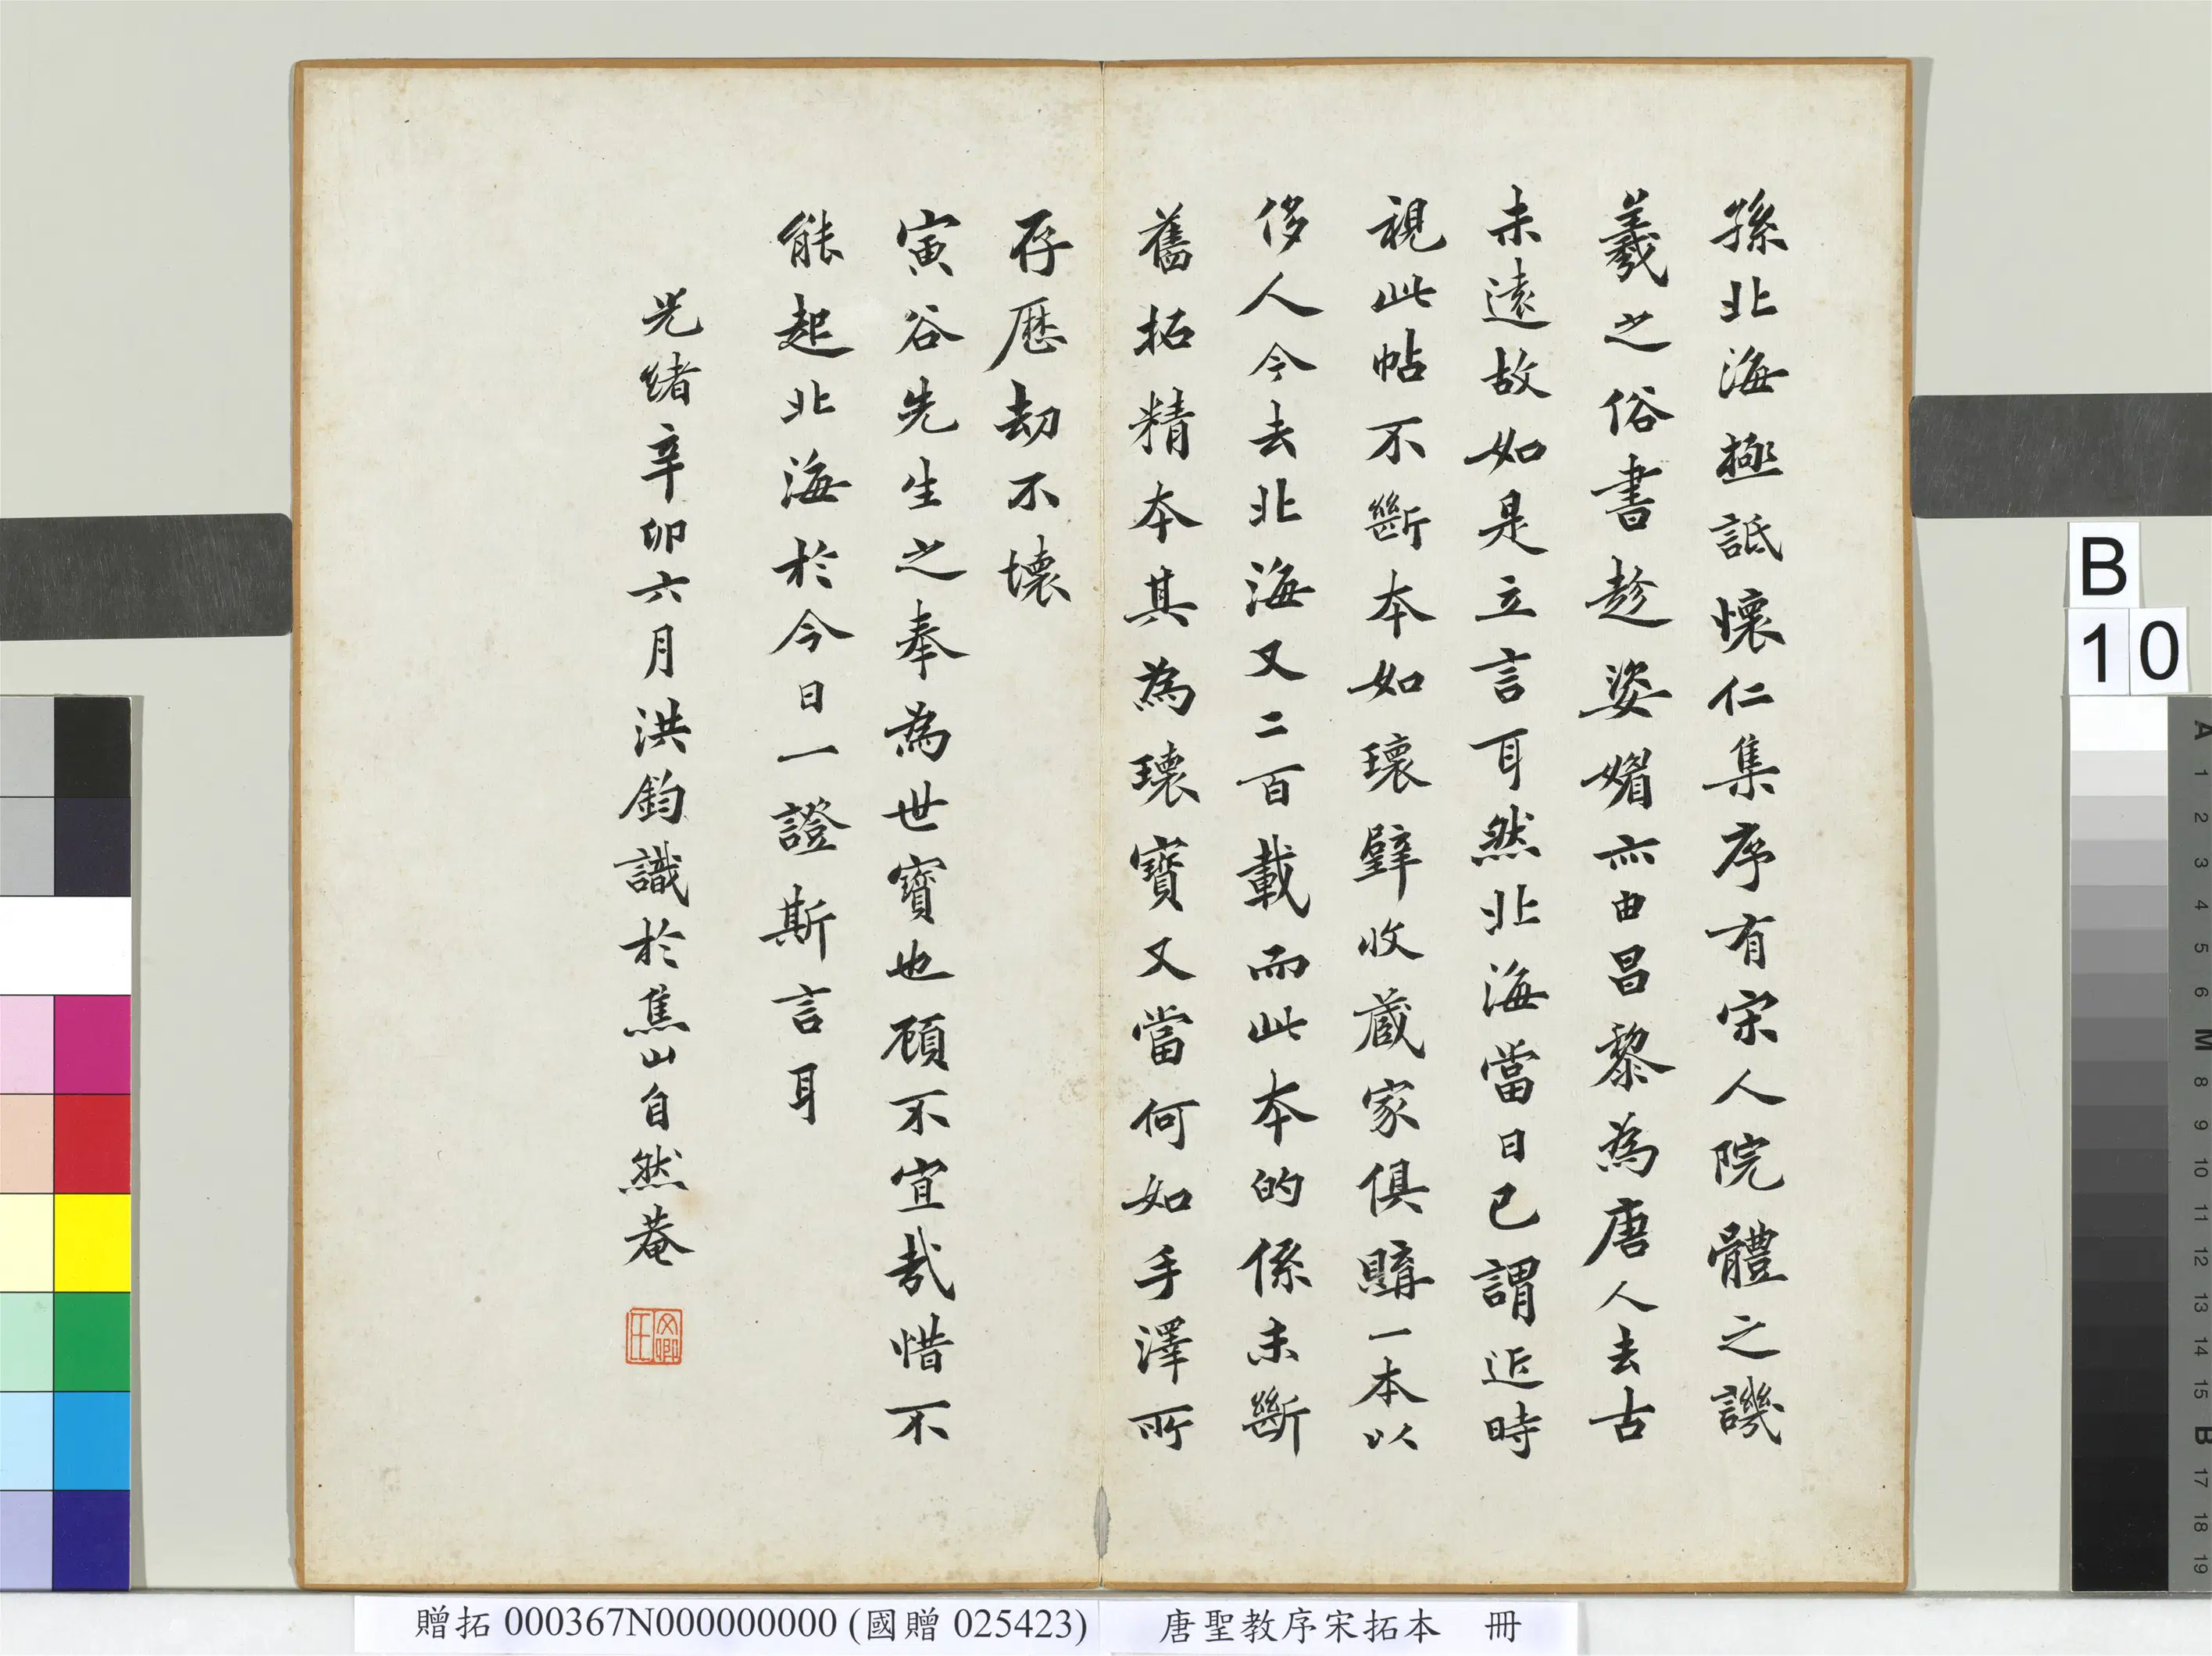 孫北海極詆懷仁集序有宋人院體之譏
羲之俗書趁姿媚亦由昌黎為唐人去古
未遠故如是立言耳然北海當日已謂近時
視此帖不斷本如瓌璧收藏家俱購一本以
侈人今去北海又二百載而此本的係未斷
舊拓精本其為瓌寶又當何如手澤所
存歷劫不壞
寅谷先生之奉為世寶也顧不宜哉惜不
能起北海於今日一證斯言耳
光緒辛卯六月洪鈞識於焦山自然菴
文卿
B
10
A 1 2 3 4 5 6 M 8 9 10 11 12 13 14 15 B 17 18 19
贈拓 000367N000000000 (國贈 025423)
唐聖教序宋拓本 冊